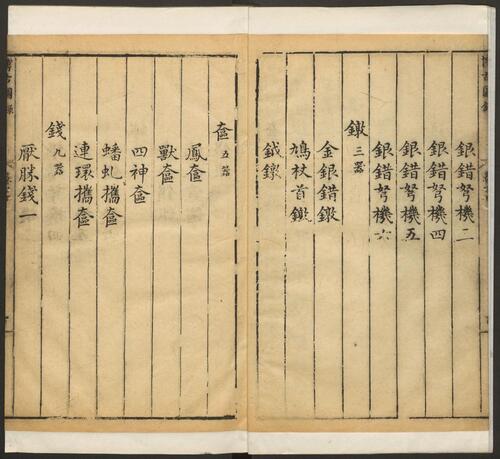 銀錯弩機二
銀錯弩機四
銀錯弩機五
銀錯弩機六
鐓三器
金銀錯鐓
鳩杖首鐓
鉞鐓
奩五器
鳳奩
獸奩
四神奩
蟠虬攜奩
連環攜奩
錢九器
厭勝錢一